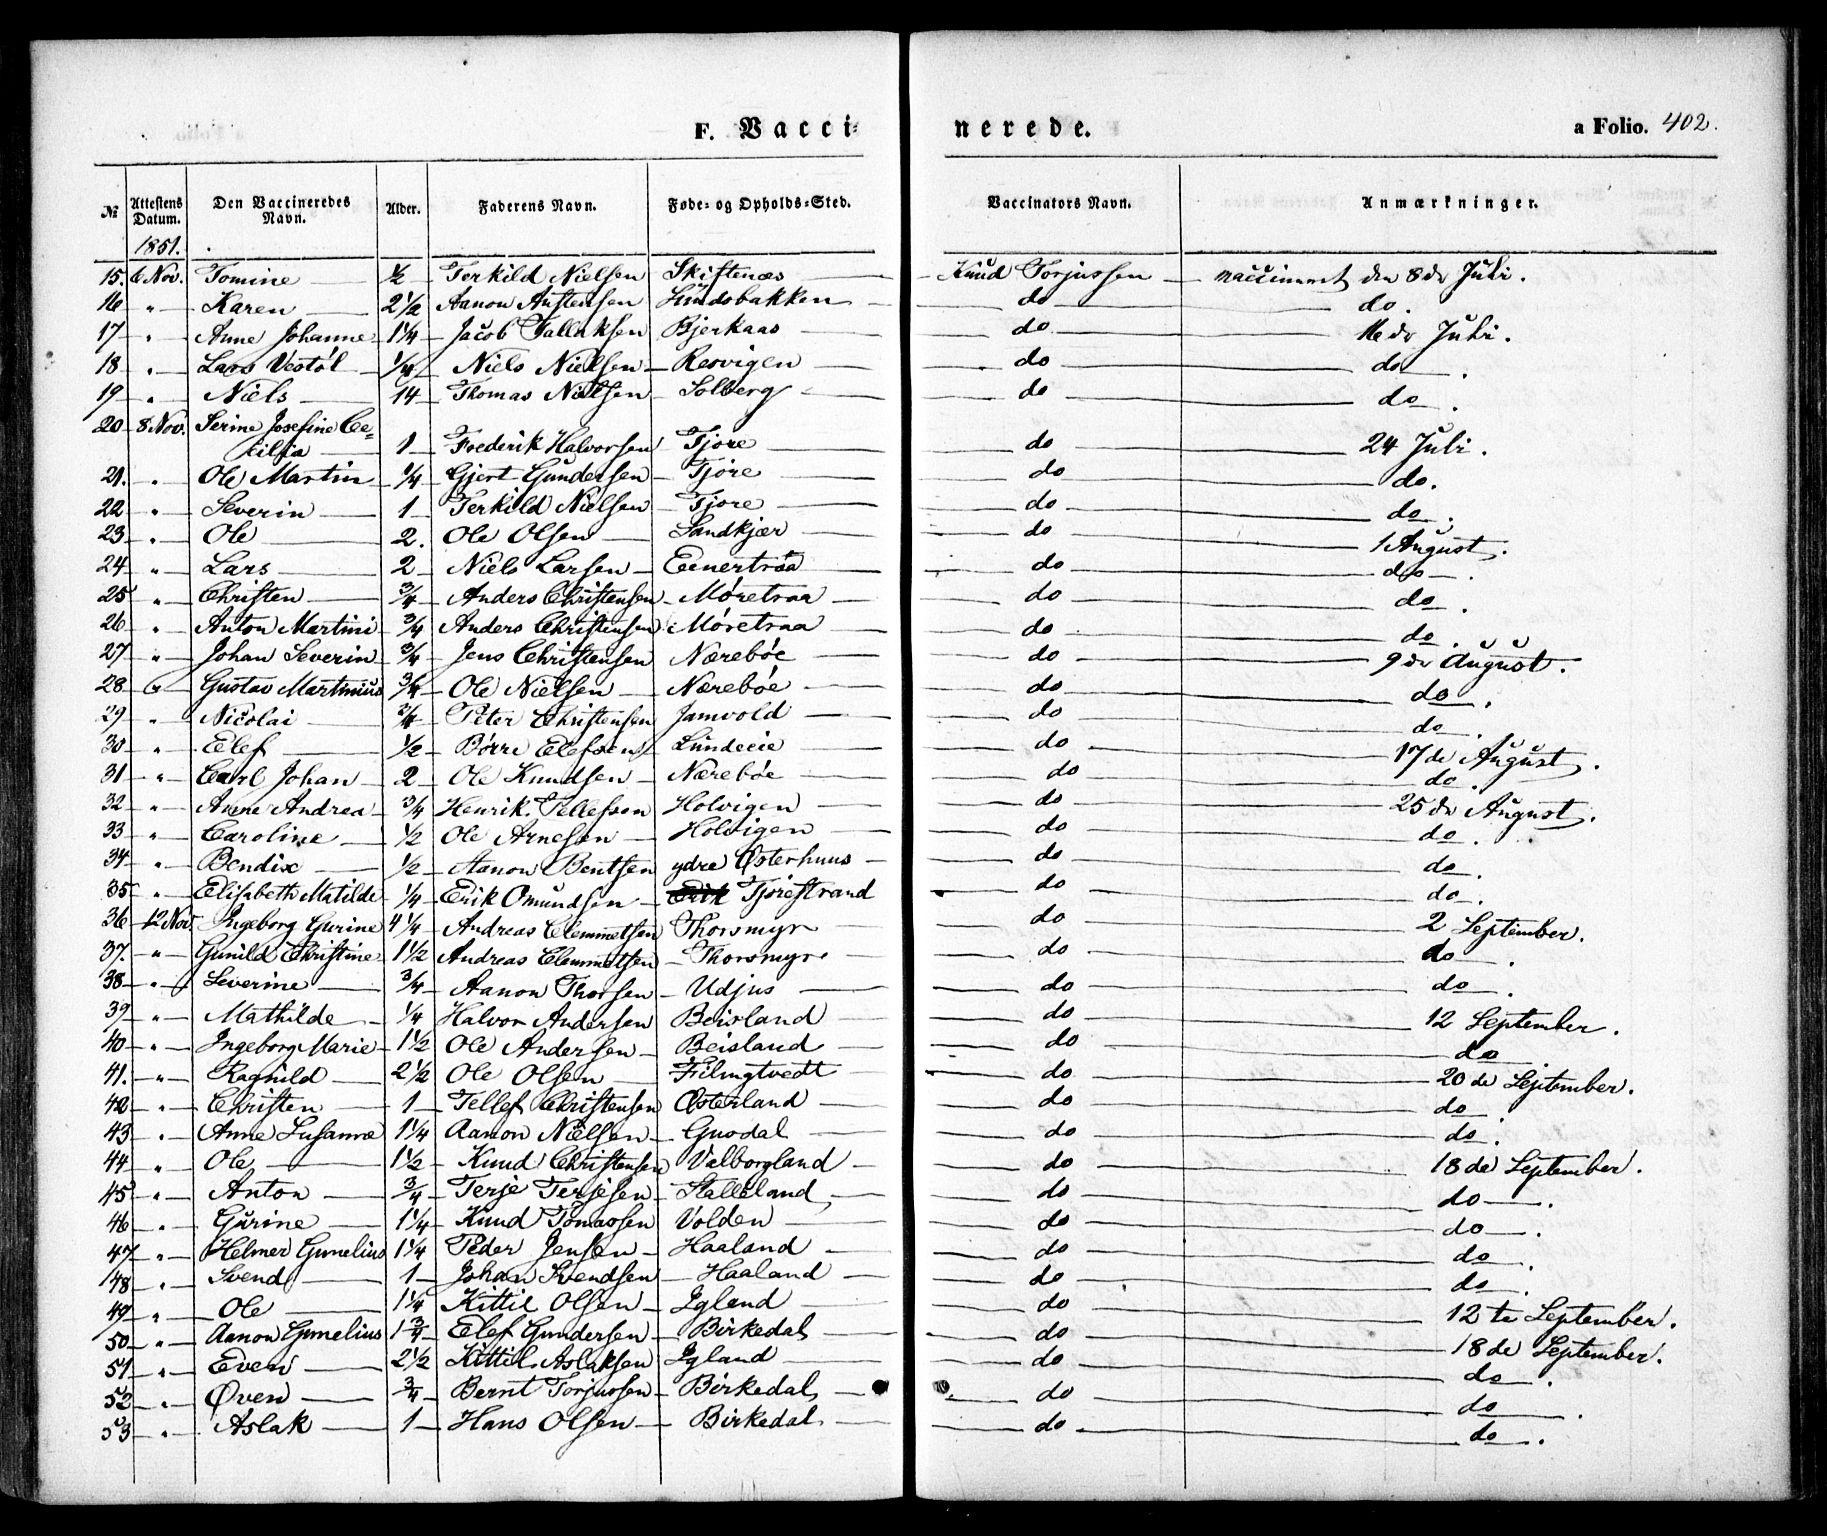 F. Vacci= nerede. a Folio. 402.
№ | Attestens Datum. | Den Vaccineredes Navn. | Alder. | Faderens Navn. | Føde- og Opholds-Sted. | Vaccinators Navn. | Anmærkninger.
1851.
15. 6 Nov. Tomine ½ Terkild Nielsen Skiftenæs Knud Torjussen vaccineret den 8de Juli.
16 " Karen 2½ Aanon Austensen Lundsbakken do do.
17 " Anne Johanne 1¼ Jacob Tallaksen Bjerkaas do 16de Juli.
18 " Lars Vestøl ¼ Niels Nielsen Resvigen do do.
19 " Niels 14 Thomas Nielsen Solberg do do.
20 8 Nov. Serine Josefine Ce=
cilia 1 Frederik Halvorsen Tjore do 24 Juli.
21. " Ole Martin ¼ Gjert Gundersen Tjøre do do.
22 " Severin 1 Terkild Nielsen Tjore do do.
23 " Ole 2. Ole Olsen Sandkjær do 1 August.
24 " Lars 2 Niels Larsen Eenertraa do do.
25 " Christen ¾ Anders Christensen Møretraa do do.
26 " Anton Martini ¾ Anders Christensen Møretraa do do.
27 " Johan Severin ¾ Jens Christensen Nærebøe do 9de August.
28 " Gustav Martinius ¾ Ole Nielsen Nærebøe do do.
29 " Nicolai ¾ Peter Christensen Jamvold do do.
30 " Elef ½ Børre Elefsens Lundeeie do 17de August.
31 " Carl Johan 2 Ole Knudsen Nærebøe do do.
32 " Anne Andrea ¾ Henrik Tellefsen Holvigen do 25de August.
33 " Caroline ½ Ole Arnesen Holvigen do do.
34 " Bendix ½ Aanon Bentsen ydre Østerhuus do do.
35 " Elisabeth Matilde ¼ Erik Omundsen Tjorestrand do do.
36 12 Nov. Ingeborg Gurine 4¼ Andreas Clemmetsen Thorsmyr do 2 September.
37. " Gunild Christine 1½ Andreas Clemmetsen Thorsmyr do do.
38 " Severine ¾ Aanon Thorsen Udjus do do.
39 " Mathilde ¼ Halvor Andersen Beisland do 12 September.
40 " Ingeborg Marie 1½ Ole Andersen Beisland do do
41. " Ragnild 2½ Ole Olsen Frilingtvedt do 20de September.
42 " Christen 1 Tellef Christensen Østerland do do.
43 " Anne Susanne 1¼ Aanon Nielsen Guodal do do.
44 " Ole 1½ Knud Christensen Valborgland do 18de September.
45 " Anton ¾ Terje Terjesen Stalleland do do.
46 " Gurine 1¼ Knud Tomassen Volden do do.
47 " Helmer Gunelius 1¼ Peder Jensen Haaland do do.
48 " Svend 1 Johan Svendsen Haaland do do.
49 " Ole 1¼ Kittil Olsen Igland do 12te September.
50 " Aanon Gunelius 1¾ Elef Gundersen Birkedal do 18de September.
51 " Even 2½ Kittil Aslaksen Igland do do.
52 " Øven ¾ Bernt Torjussen Birkedal do do.
53 " Aslak 1 Hans Olsen Birkedal do do.